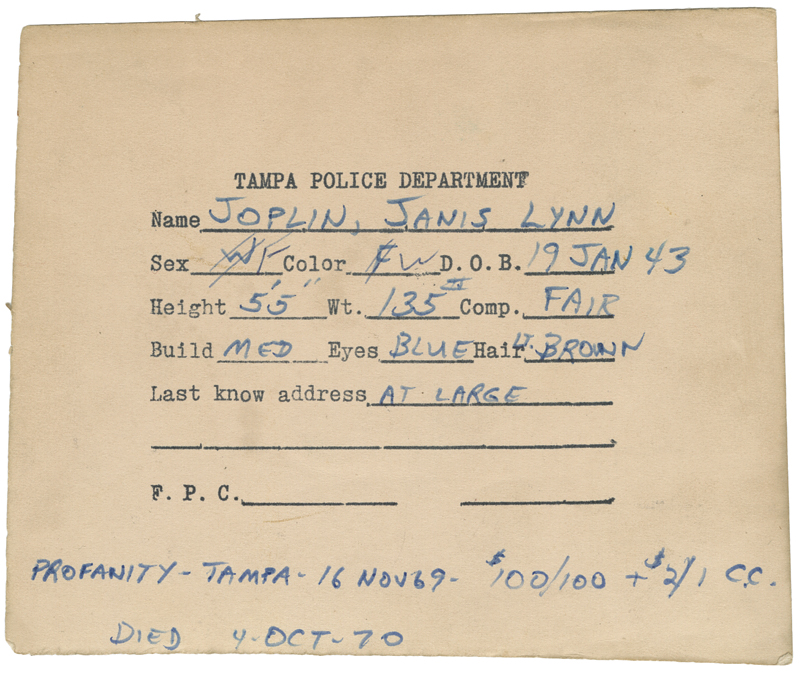 TAMPA POLICE DEPARTMENT
Name JOPLIN, JANIS LYNN
Sex WF Color FW D.O.B. 19 JAN 43
Height 5'5" Wt. 135 Comp. FAIR
Build MED Eyes BLUE Hair LT. BROWN
Last know address AT LARGE
F. P. C.
PROFANITY - TAMPA - 16 NOV 69 - $100/100 + $2/1 C.C.
DIED 4-OCT-70